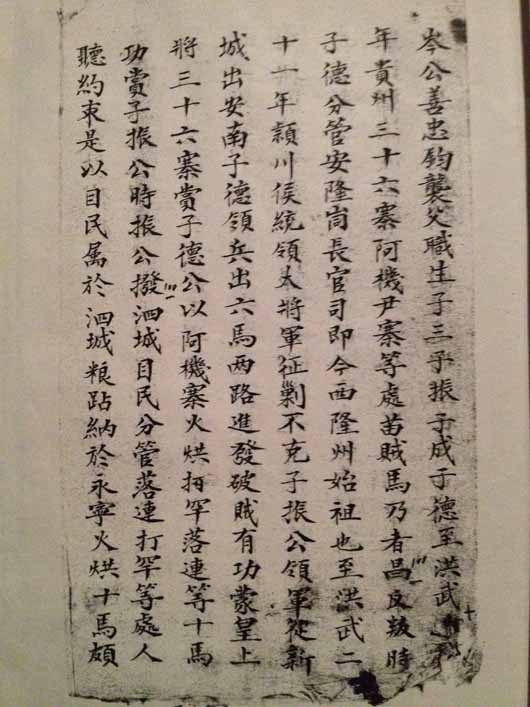 岑公善忠鈞襲父職生子三子振子成子德至洪武
年貴州三十六寨阿機尹寨等處苗賊馬乃者昌反叛時
子德分管安隆峝長官司即今西隆州始祖也至洪武二
十一年頴川侯統領大將軍征剿不克子振公領軍從新
城出安南子德領兵出六馬兩路進發破賊有功蒙皇上
將三十六寨賞子德公以阿機寨火烘打罕落連等十馬
功賞子振公時振公撥泗城目民分管落連打罕等處人
聽約束是以目民属於泗城粮跕納於永寧火烘十馬頗